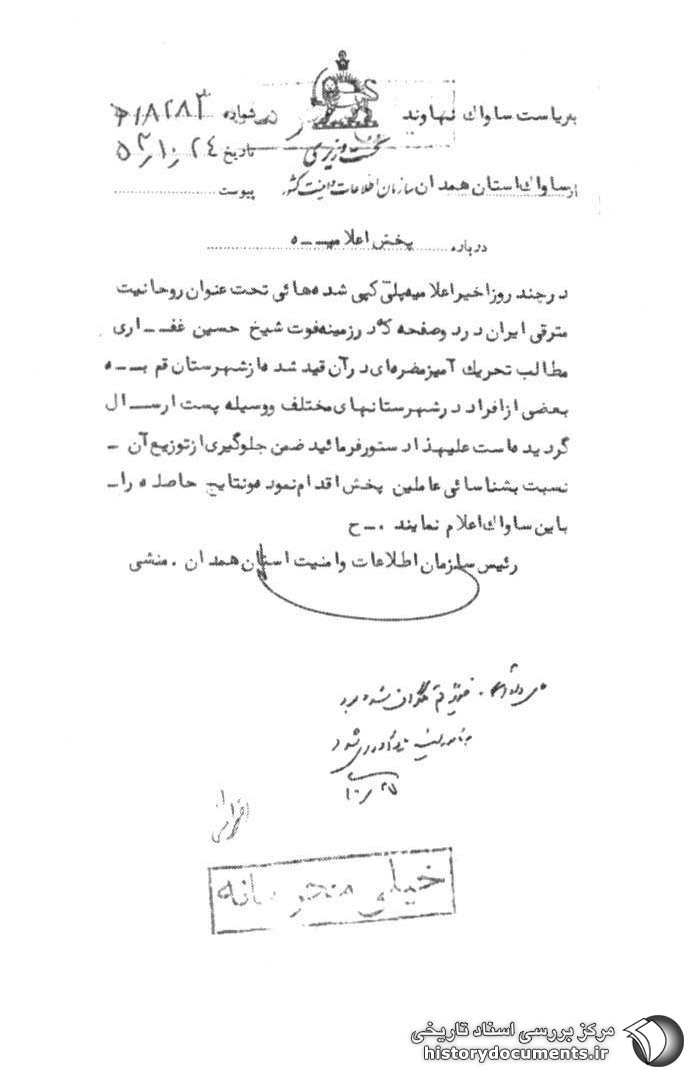 بریاست ساواك نهاوند
شماره ۱۸۲۸۳
نخست وزیری
تاریخ ۲۴ر۱۰ر۵۳
از ساواك استان همدان سازمان اطلاعات و امنیت کشور
پیوست
درباره پخش اعلامیـــه
در چند روز اخیر اعلامیه پلی کپی شده هائی تحت عنوان روحانیت
مترقی ایران در دو صفحه که در زمینه فوت شیخ حسین غفــاری
مطالب تحریك آمیز مضره ای در آن قید شده از شهرستان قم بــه
بعضی از افراد در شهرستانهای مختلف بوسیله پست ارســال
گردیده است علیهذا دستور فرمائید ضمن جلوگیری از توزیع آن ـ
نسبت بشناسائی عاملین پخش اقدام نموده و نتایج حاصله را ـ
باین ساواك اعلام نمایند .ـ ح
رئیس سازمان اطلاعات و امنیت استان همدان . منشی
شود
۲۵ر۱۰
خیلی محرمانه
مرکز بررسی اسناد تاریخی
historydocuments.ir